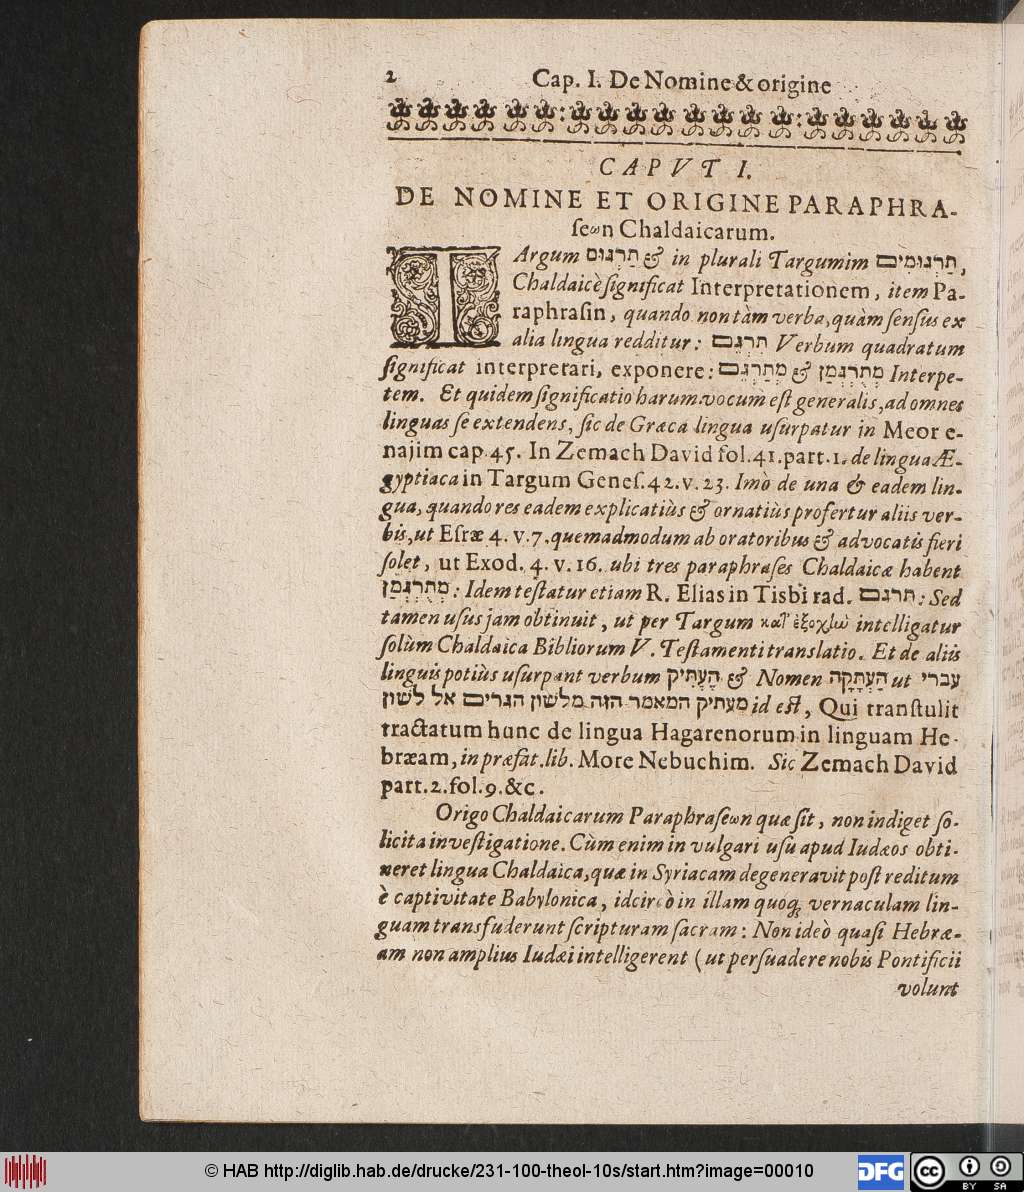 2 Cap. I. De Nomine & origine
CAPVT I.
DE NOMINE ET ORIGINE PARAPHRA-
ſeωn Chaldaicarum.
TArgum תַּרְגּוּם & in plurali Targumim תַּרְגּוּמִים,
Chaldaicè ſignificat Interpretationem, item Pa-
raphraſin, quando non tàm verba, quàm ſenſus ex
alia lingua redditur: תִּרְגֵּם Verbum quadratum
ſignificat interpretari, exponere: מְתֻרְגְּמָן & מְתַרְגֵּם Interpe-
tem. Et quidem ſignificatio harum vocum eſt generalis, ad omnes
linguas ſe extendens, ſic de Græca lingua uſurpatur in Meor e-
najim cap. 45. In Zemach David fol. 41. part. 1. de lingua Æ-
gyptiaca in Targum Geneſ. 42. v. 23. Imò de una & eadem lin-
gua, quando res eadem explicatiùs & ornatiùs profertur aliis ver-
bis, ut Eſræ 4. v. 7. quemadmodum ab oratoribus & advocatis fieri
ſolet, ut Exod. 4. v. 16. ubi tres paraphraſes Chaldaicæ habent
מְתֻרְגְּמָן: Idem teſtatur etiam R. Elias in Tisbi rad. תרגם: Sed
tamen uſus jam obtinuit, ut per Targum κατ' ἐξοχὴν intelligatur
ſolùm Chaldaica Bibliorum V. Teſtamenti translatio. Et de aliis
linguis potiùs uſurpant verbum הֶעְתִּיק & Nomen הַעְתָּקָה ut עברי
מעתיק המאמר הזה מלשון הגרים אל לשון id eſt, Qui tranſtulit
tractatum hunc de lingua Hagarenorum in linguam He-
bræam, in præfat. lib. More Nebuchim. Sic Zemach David
part. 2. fol. 9. &c.
Origo Chaldaicarum Paraphraſeωn quæ ſit, non indiget ſo-
licita inveſtigatione. Cùm enim in vulgari uſu apud Iudæos obti-
neret lingua Chaldaica, quæ in Syriacam degeneravit poſt reditum
è captivitate Babylonica, idcircò in illam quoq; vernaculam lin-
guam transfuderunt ſcripturam ſacram: Non ideò quaſi Hebræ-
am non amplius Iudæi intelligerent (ut perſuadere nobis Pontificii
volunt
© HAB http://diglib.hab.de/drucke/231-100-theol-10s/start.htm?image=00010
DFG
cc BY SA